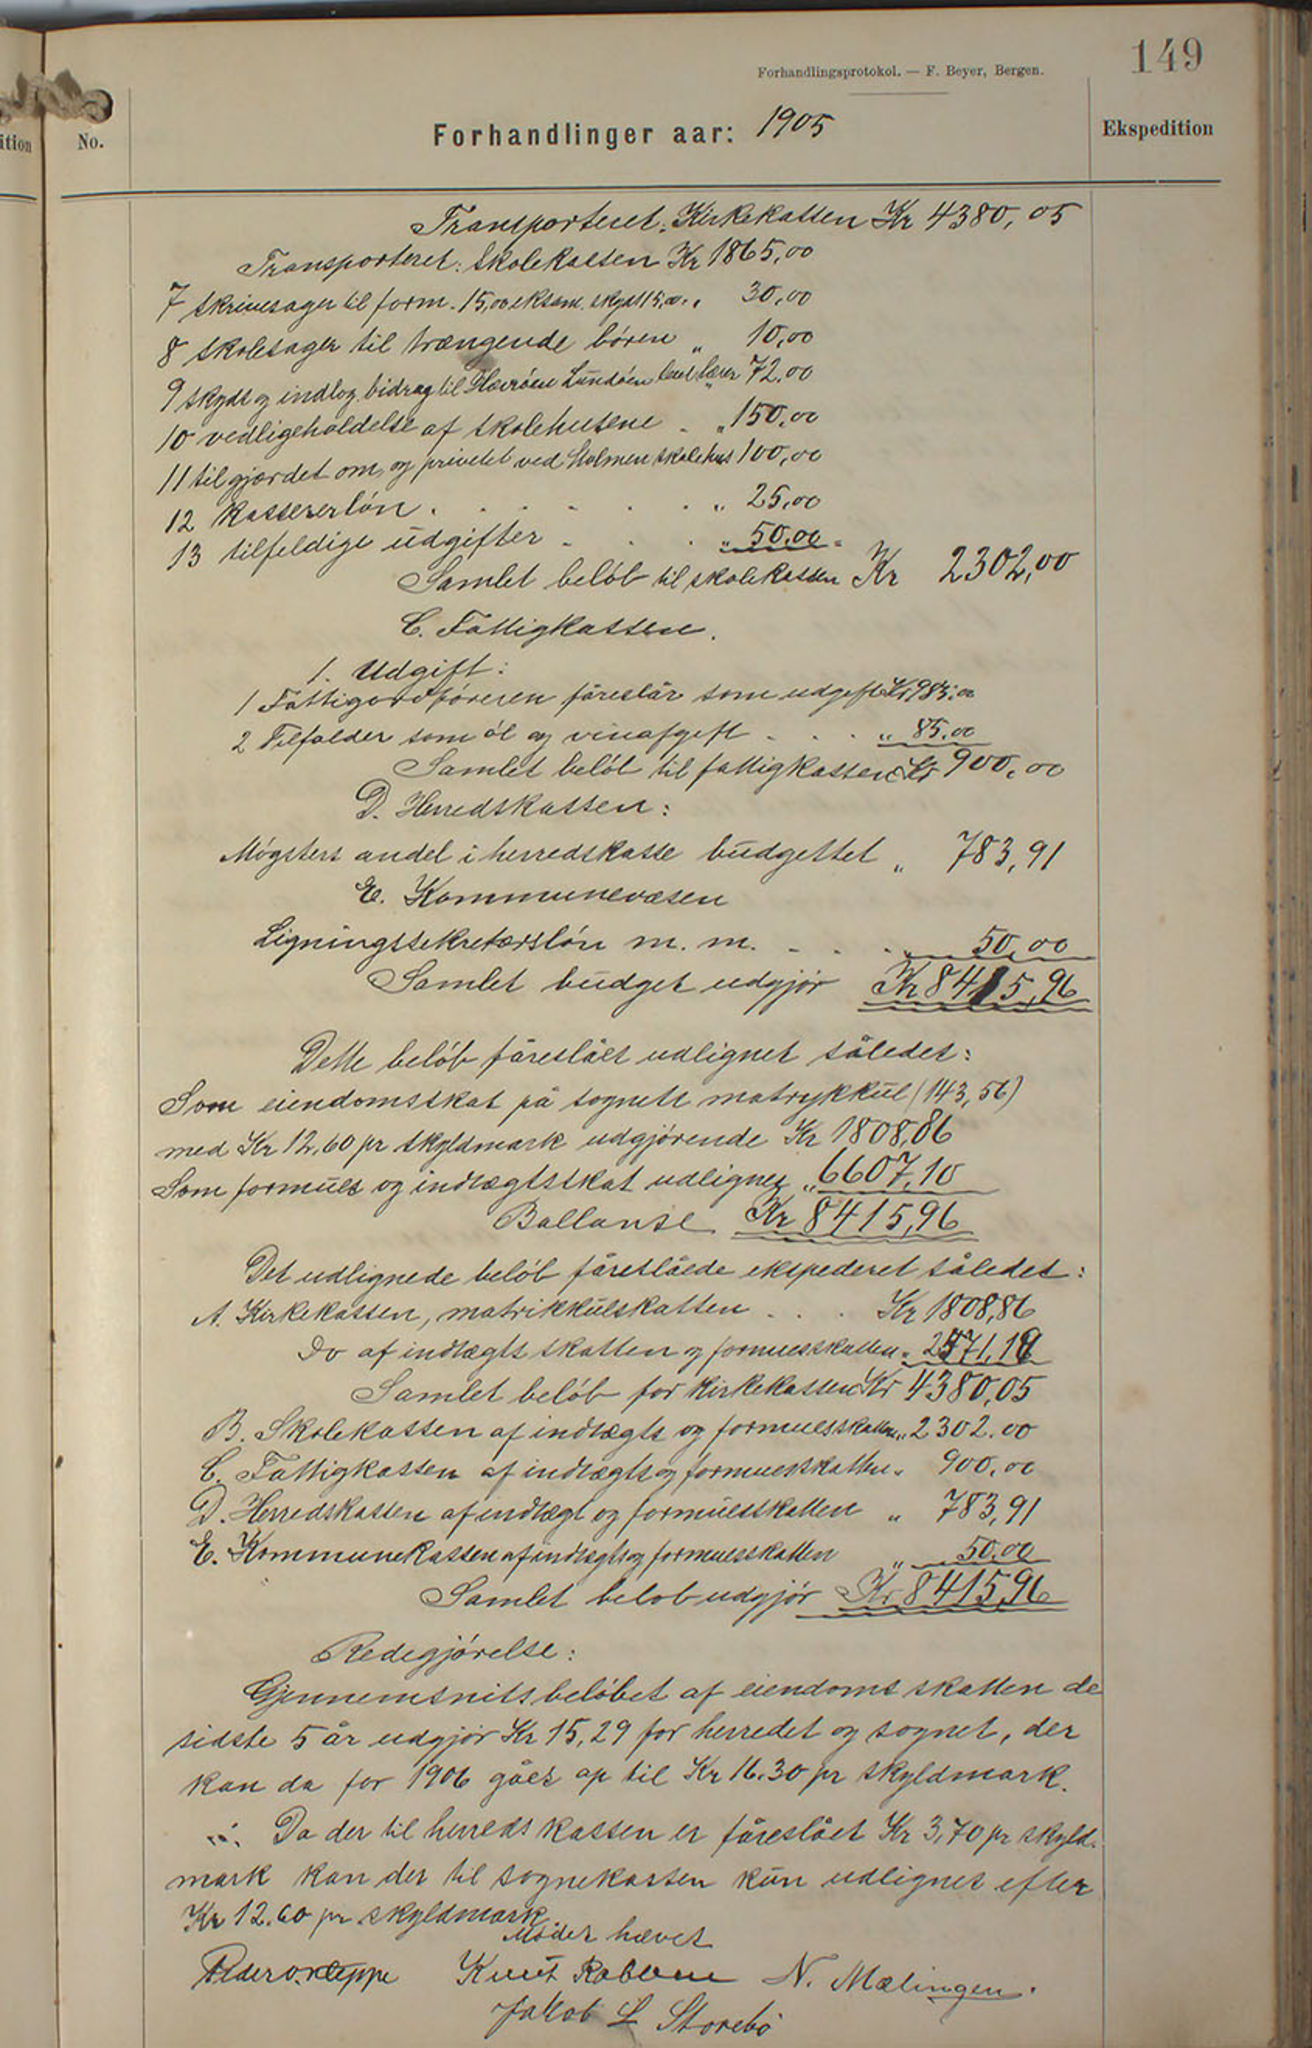 149
Forhandlingsprotokol. — F. Beyer, Bergen.
ition
No.
Forhandlinger aar: 1905
Ekspedition
Transporteret: Kirkekassen Kr 4380,05
Transporteret: Skolekassen Kr 1865,00
7 skrivesager til form. 15,00 eksam. skyds 15,00 „ 30,00
8 skolesager til trængende børn „ 10,00
9 skyds og indlog. bidrag til Lundøen 72,00
10 vedligeholdelse af skolehusene - „ 150,00
11 til gjærdet om, og privetet ved Stolmen skolehus 100,00
12 Kassererløn . . . . . „ 25,00
13 tilfeldige udgifter - . . „ 50,00
Samlet beløb til skolekassen Kr 2302,00
C. Fattigkassen.
1. Udgift:
1 Fattigordføreren føreslår som udgift Kr 985,00
2 Tilfalder som øl og vinafgift - . . „ 85,00
Samlet beløb til fattigkassen Kr 900,00
D. Herredskassen:
Møgsters andel i herredskasse budgettet „ 783,91
E. Kommunevæsen
Ligningssekretærsløn m. m. - . . „ 50,00
Samlet budget udgjør Kr 8415,96
Dette beløb føreslåes udlignet således:
Som eiendomsskat på sognets matrykkul (143,56)
med Kr 12,60 pr skyldmark udgjørende Kr 1808,86
Som formues og indtægtsskat udlignes „ 6607,10
Ballanse Kr 8415,96
Det udlignede beløb føreslåede ekspederet således:
A. Kirkekassen, matrikkulskatten . . . Kr 1808,86
Do af indtægts skatten og formuesskatten „ 2571,19
Samlet beløb for kirkekassen Kr 4380,05
B. Skolekassen af indtægts og formuesskatten „ 2302.00
C. Fattigkassen af indtægts og formuesskatten „ 900,00
D. Herredskassen af indtægt og formuesskatten „ 783,91
E. Kommunekassen af indtægts og formuesskatten „ 50,00
Samlet beløb udgjør Kr 8415,96
Redegjørelse:
Gjennemsnitsbeløbet af eiendoms skatten de
sidste 5 år udgjør Kr 15,29 for herredet og sognet, der
kan da for 1906 gåes op til Kr 16.30 pr skyldmark.
Da der til herreds kassen er føreslået Kr 3,70 pr skyld-
mark kan der til sognekassen kun udlignes efter
Kr 12.60 pr skyldmark.
Mødet hævet
Peder Kleppe Knut Rabben N. Mælingen.
Jakob L Storebø